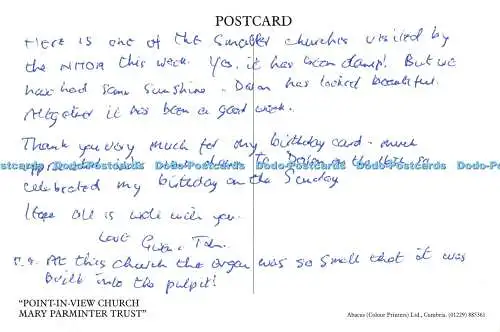 POSTCARD
Here is one of the smaller churches visited by
the NHOA this week. Yes, it has been damp! But we
have had some sunshine - Devon has looked beautiful.
Altogether it has been a good week.
Thank you very much for my birthday card - much
Dodo-Postcards Dodo-Postcards Dodo-Postcards
celebrated my birthday on the Sunday
Hope all is well with you.
Love Gwen & Tom.
P.S. At this church the organ was so small that it was
built into the pulpit!
"POINT-IN-VIEW CHURCH
MARY PARMINTER TRUST"
Abacus (Colour Printers) Ltd., Cumbria. (01229) 885361